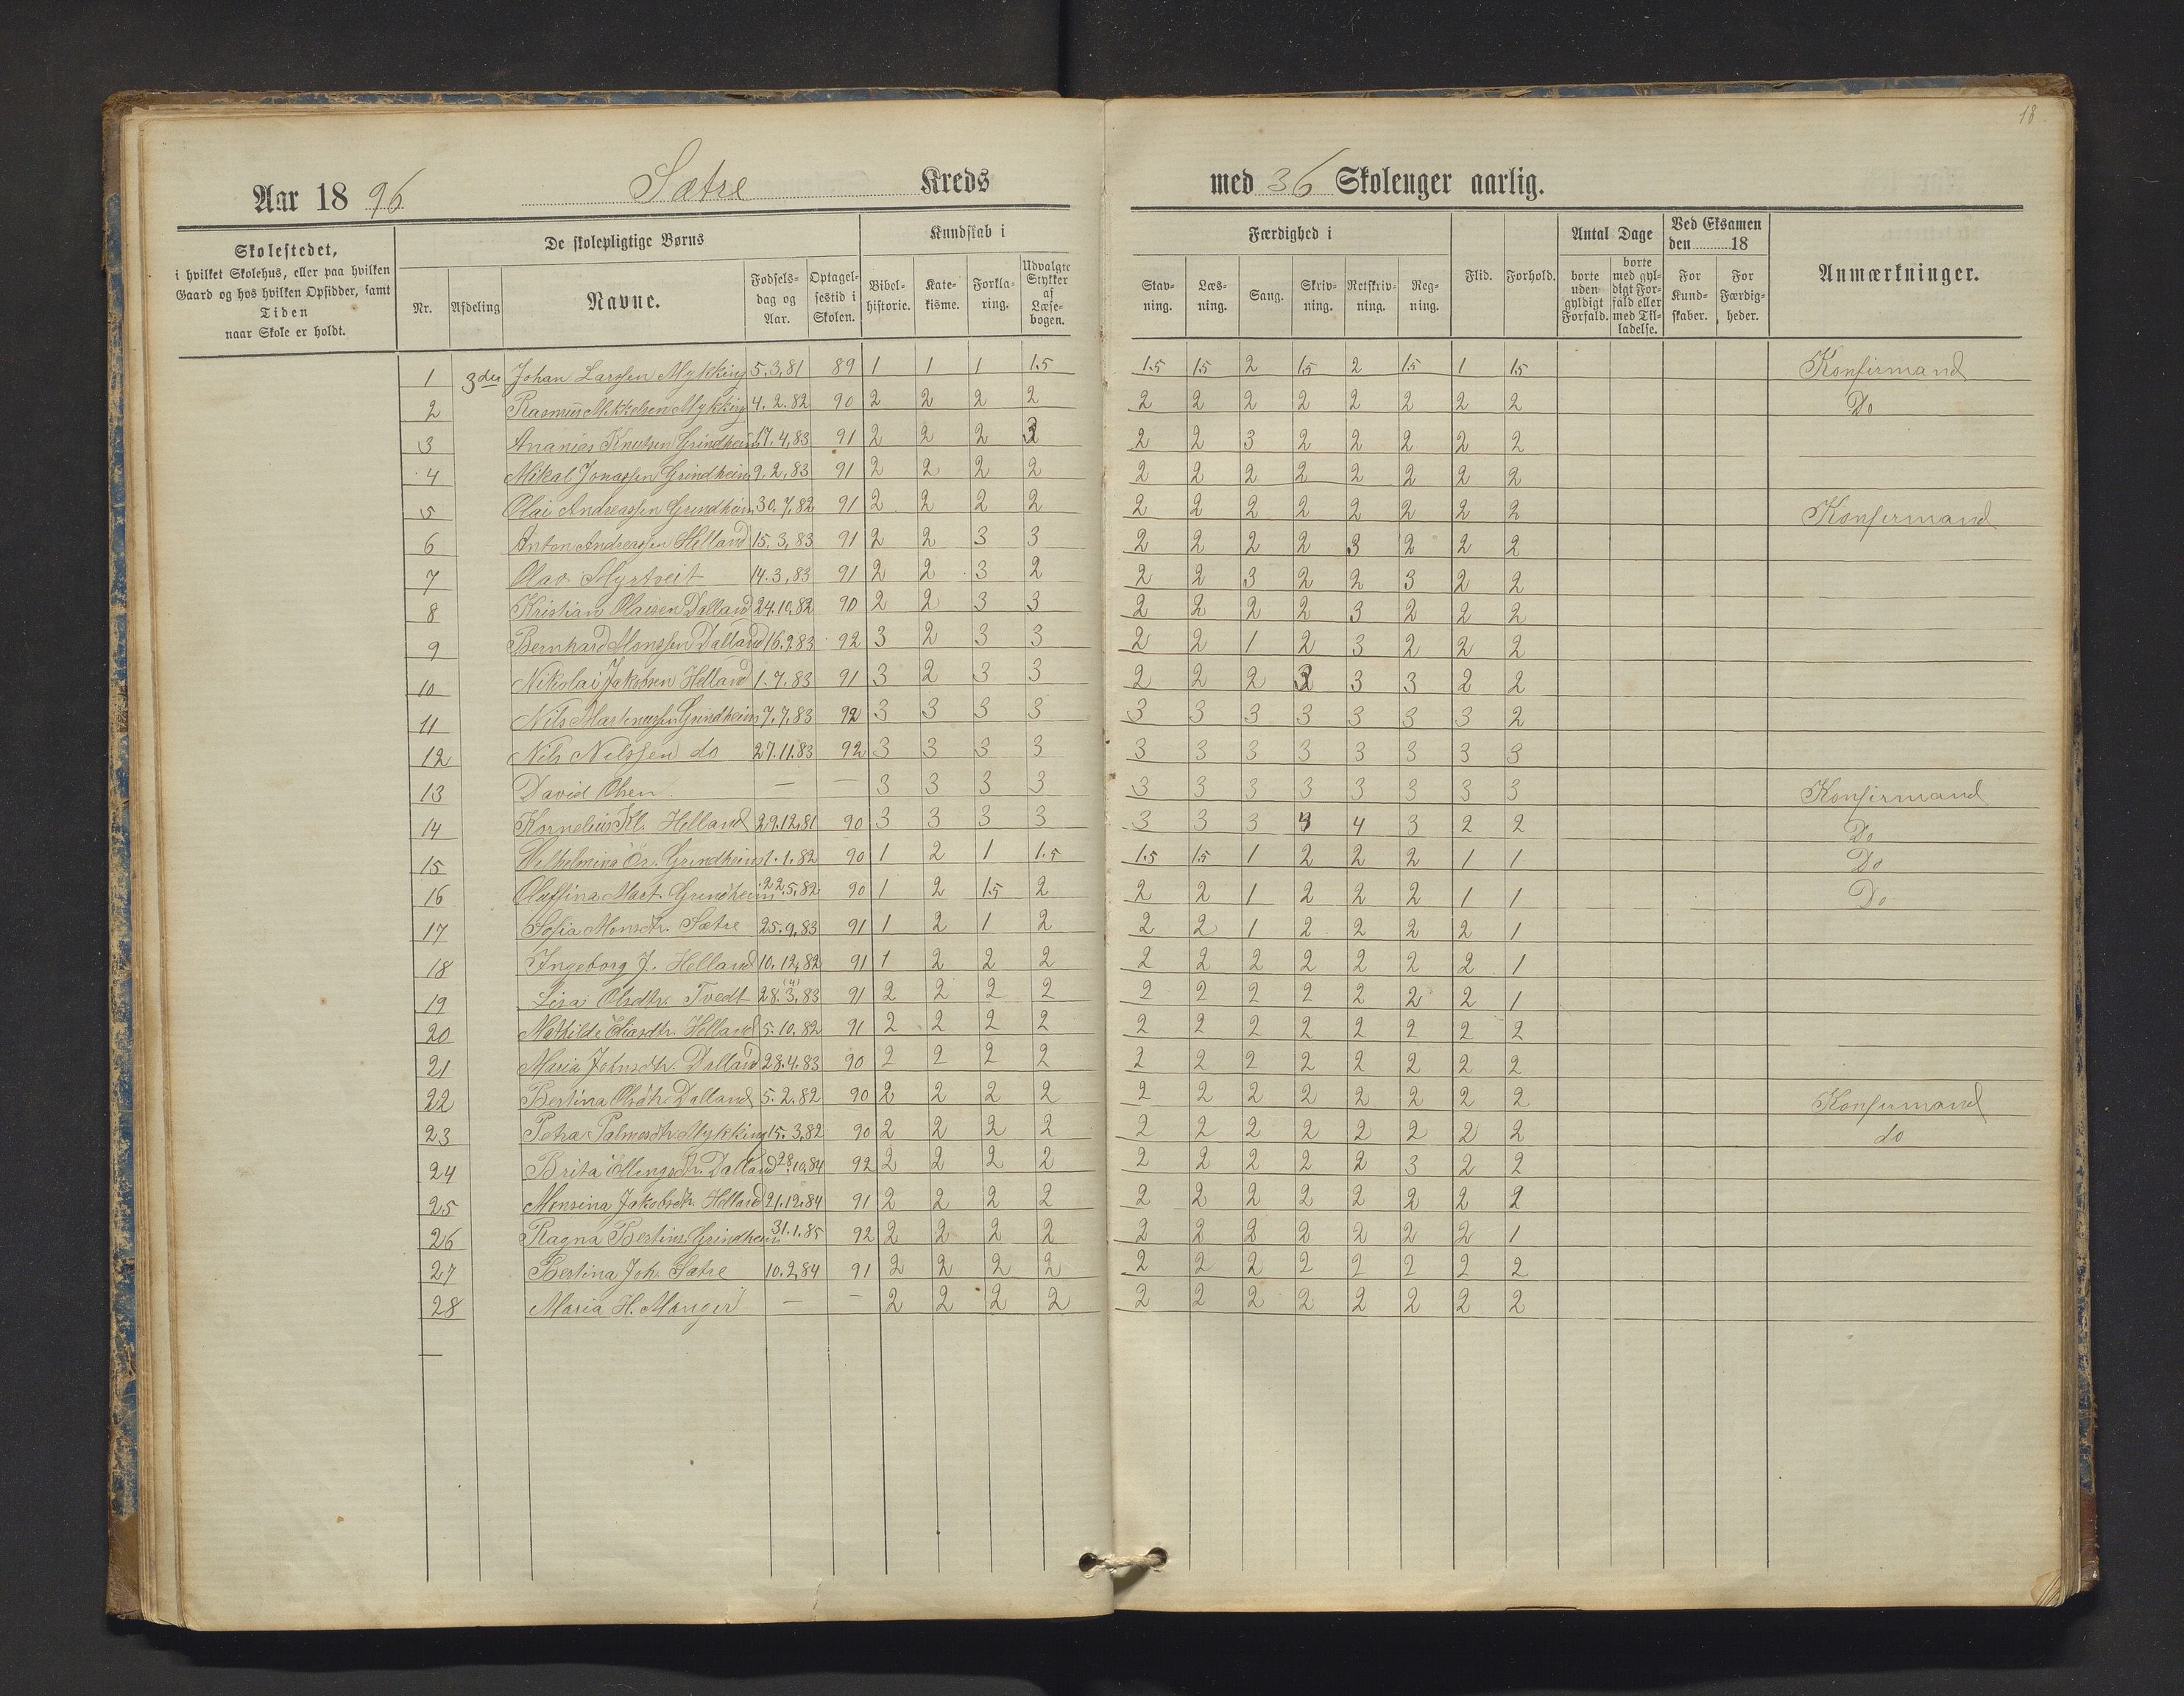 18
Aar 1896 Sætre Kreds med 36 Skoleuger aarlig.
Skolestedet, i hvilket Skolehus, eller paa hvilken Gaard og hos hvilken Opsidder, samt Tiden naar Skole er holdt.
De skolepligtige Børns
Nr. Afdeling Navne. Fødselsdag og Aar. Optagelsestid i Skolen.
Kundskab i
Bibelhistorie. Katekisme. Forklaring. Udvalgte Stykker af Læsebogen.
Færdighed i
Stavning. Læsning. Sang. Skrivning. Retskrivning. Regning.
Flid. Forhold.
Antal Dage
borte uden gyldigt Forfald. borte med gyldigt Forfald eller med Tilladelse.
Ved Eksamen den 18
For Kundskaber. For Færdigheder.
Anmærkninger.
1 3die Johan Larssen Mykking 5.3.81 89 1 1 1 1.5 1.5 1.5 2 1.5 2 1.5 1 1.5 Konfirmand
2 Rasmus Mikkelsen Mykking 4.2.82 90 2 2 2 2 2 2 2 2 2 2 2 2 Do
3 Ananias Knutsen Grindheim 17.4.83 91 2 2 2 3 2 2 3 2 2 2 2 2
4 Mikal Jonassen Grindheim 9.2.83 91 2 2 2 2 2 2 2 2 2 2 2 2
5 Olai Andreassen Grindheim 30.7.82 91 2 2 2 2 2 2 2 2 2 2 2 2 Konfirmand
6 Anton Andreassen Helland 15.3.83 91 2 2 3 3 2 2 2 2 3 2 2 2
7 Olav Myrtveit 14.3.83 91 2 2 3 2 2 2 3 2 2 3 2 2
8 Kristian Olaisen Dalland 24.10.82 90 2 2 3 3 2 2 2 2 3 2 2 2
9 Bernhard Monssen Dalland 16.9.83 92 3 2 3 3 2 2 1 2 3 2 2 2
10 Nikolai Jakobsen Helland 1.7.83 91 3 2 3 3 2 2 2 3 3 3 2 2
11 Nils Martinussen Grindheim 7.7.83 92 3 3 3 3 3 3 3 3 3 3 3 2
12 Nils Nilssen do 27.11.83 92 3 3 3 3 3 3 3 3 3 3 3 3
13 David Olsen — — 3 3 3 3 3 3 3 3 3 3 3 3 Konfirmand
14 Kornelius Kl. Helland 29.12.81 90 3 3 3 3 3 3 3 4 4 3 2 2 Do
15 Vilhelmina Grindheim 1.1.82 90 1 2 1 1.5 1.5 1.5 1 2 2 2 1 1 Do
16 Oluffina Mart. Grindheim 22.5.82 90 1 2 1.5 2 2 2 1 2 2 2 1 1 Do
17 Sofia Monsdtr. Sætre 25.9.83 91 1 2 1 2 2 2 1 2 2 2 2 1
18 Ingeborg J. Helland 10.12.82 91 1 2 2 2 2 2 2 2 2 2 2 1
19 Lisa Olsdtr. Tvedt 28.3.83 91 2 2 2 2 2 2 2 2 2 2 2 1
20 Mathilde Eliasdtr. Helland 5.10.82 91 2 2 2 2 2 2 2 2 2 2 2 2
21 Maria Johnsdtr. Dalland 28.4.83 90 2 2 2 2 2 2 2 2 2 2 2 2
22 Bertina Olsdtr. Dalland 5.2.82 90 2 2 2 2 2 2 2 2 2 2 2 2 Konfirmand
23 Petra Palmesdtr. Mykking 15.3.82 90 2 2 2 2 2 2 2 2 2 2 2 2 do
24 Brita Ellingsdtr. Dalland 28.10.84 92 2 2 2 2 2 2 2 2 2 3 2 2
25 Monsina Jakobsdtr. Helland 21.12.84 91 2 2 2 2 2 2 2 2 2 2 2 2
26 Ragna Bertins. Grindheim 31.1.85 92 2 2 2 2 2 2 2 2 2 2 2 1
27 Bertina Joh. Sætre 10.2.84 91 2 2 2 2 2 2 2 2 2 2 2 2
28 Maria H. Manger — — 2 2 2 2 2 2 2 2 2 2 2 2